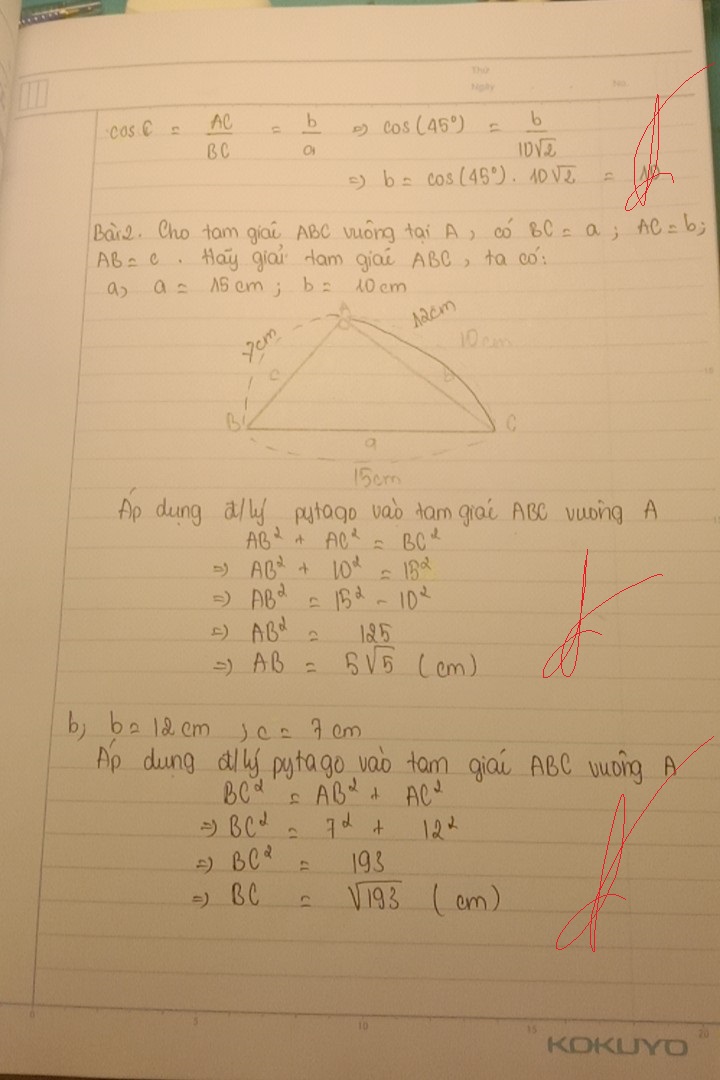 Thứ
Ngày
No.
cos C = AC/BC = b/a => cos(45°) = b/10√2
=> b = cos(45°). 10√2 = 10
Bài 2. Cho tam giái ABC vuông tại A, có BC = a; AC = b;
AB = c. Hãy giải tam giái ABC, ta có:
a, a = 15cm; b = 10cm
A
12cm
7cm
10cm
c
b
B
C
a
15cm
Áp dụng đ/lý pytago vào tam giái ABC vuông A
AB² + AC² = BC²
=> AB² + 10² = 15²
=> AB² = 15² - 10²
=> AB² = 125
=> AB = 5√5 (cm)
b, b = 12cm ; c = 7cm
Áp dụng đ/lý pytago vào tam giái ABC vuông A
BC² = AB² + AC²
=> BC² = 7² + 12²
=> BC² = 193
=> BC = √193 (cm)
0 5 10 15 20
KOKUYO